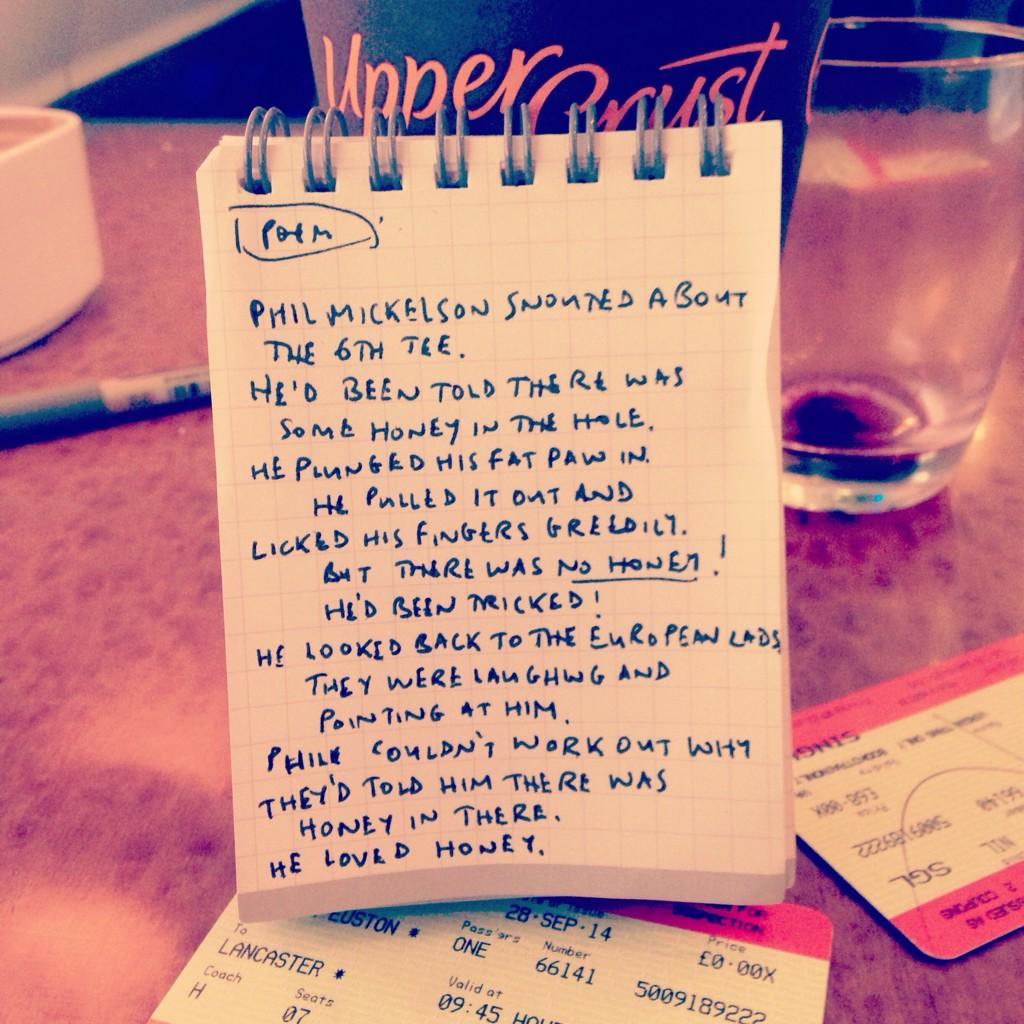 Upper Crust
POEM
PHIL MICKELSON SNOUTED ABOUT
THE 6TH TEE.
HE'D BEEN TOLD THERE WAS
SOME HONEY IN THE HOLE.
HE PLUNGED HIS FAT PAW IN.
HE PULLED IT OUT AND
LICKED HIS FINGERS GREEDILY.
BUT THERE WAS NO HONEY!
HE'D BEEN TRICKED!
HE LOOKED BACK TO THE EUROPEAN LADS
THEY WERE LAUGHING AND
POINTING AT HIM.
PHIL COULDN'T WORK OUT WHY
THEY'D TOLD HIM THERE WAS
HONEY IN THERE.
HE LOVED HONEY.
EUSTON *
28·SEP·14
INSPECTION
To
LANCASTER *
Pass'grs
ONE
Number
66141
Price
£0·00X
5009189222
Coach
H
Seats
07
Valid at
09:45
SGL
NIL
5009189222
66140
Price
£68·00X
2 COUPONS